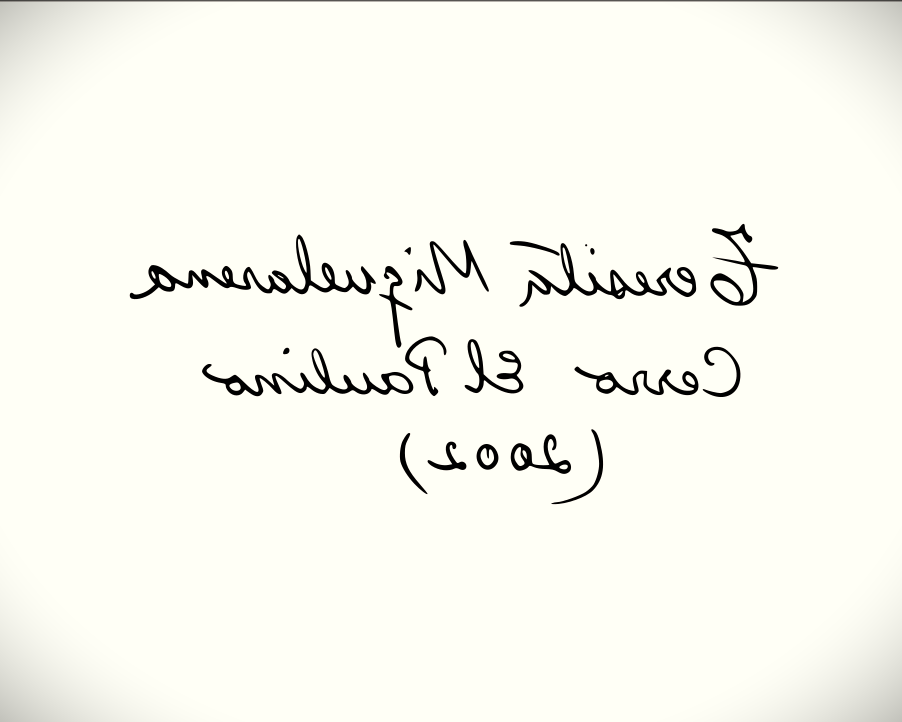 Teresita Miquelarena
Cerro El Paulino
(2002)